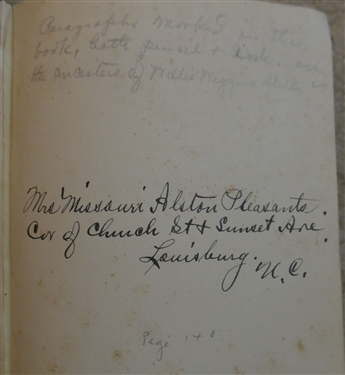 Paragraphs marked in this
book, both pencil & ink, are
the ancestors of Willis Wiggins Alston
Mrs Missouri Alston Pleasants.
Cor of Church St & Sunset Ave.
Louisburg.
N.C.
Page